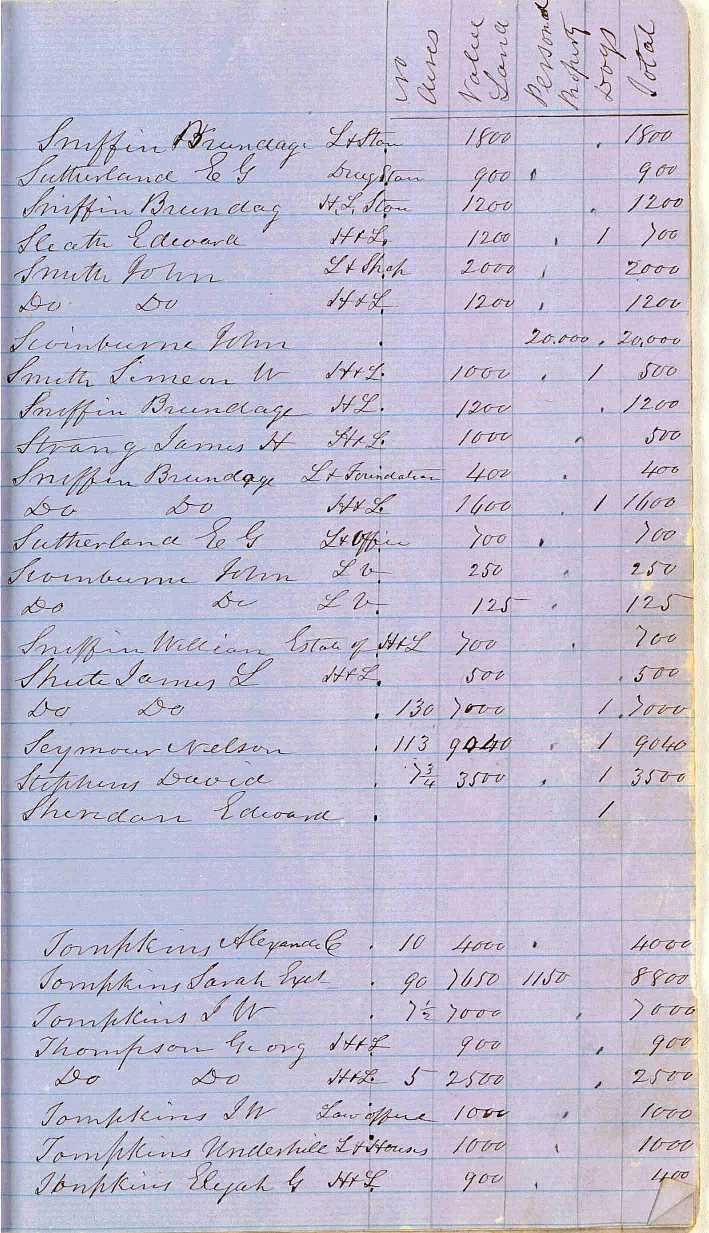 No Acres Value Land Personal Property Dogs Total
Sniffin Brundage L & Stor 1800 1800
Sutherland E G Drug Stor 900 900
Sniffin Brundag H. L. Stor 1200 1200
Sleath Edward H & L. 1200 1 700
Smith John L & Shop 2000 2000
Do Do H & L 1200 1200
Swinburne John 20.000 20,000
Smith Simeon W H & L. 1000 1 500
Sniffin Brundage H L. 1200 1200
Strang James H H & L. 1000 500
Sniffin Brundage L & Foundation 400 400
Do Do H & L. 1600 1 1600
Sutherland E G L & Office 700 700
Swinburne John L V. 250 250
Do Do L V. 125 125
Sniffin William Estate of H & L 700 700
Shute James L H & L. 500 500
Do Do 130 7000 1 7000
Seymour Nelson 113 9040 1 9040
Stephens David 7 3/4 3500 1 3500
Sheridan Edward 1
Tompkins Alexande C 10 4000 4000
Tompkins Sarah Exct 90 7650 1150 8800
Tompkins J W 7 1/2 7000 7000
Thompson Georg H & L 900 900
Do Do H & L. 5 2500 2500
Tompkins J W Law office 1000 1000
Tompkins Underhill L & Houses 1000 1000
Tompkins Elijah G H & L. 900 400